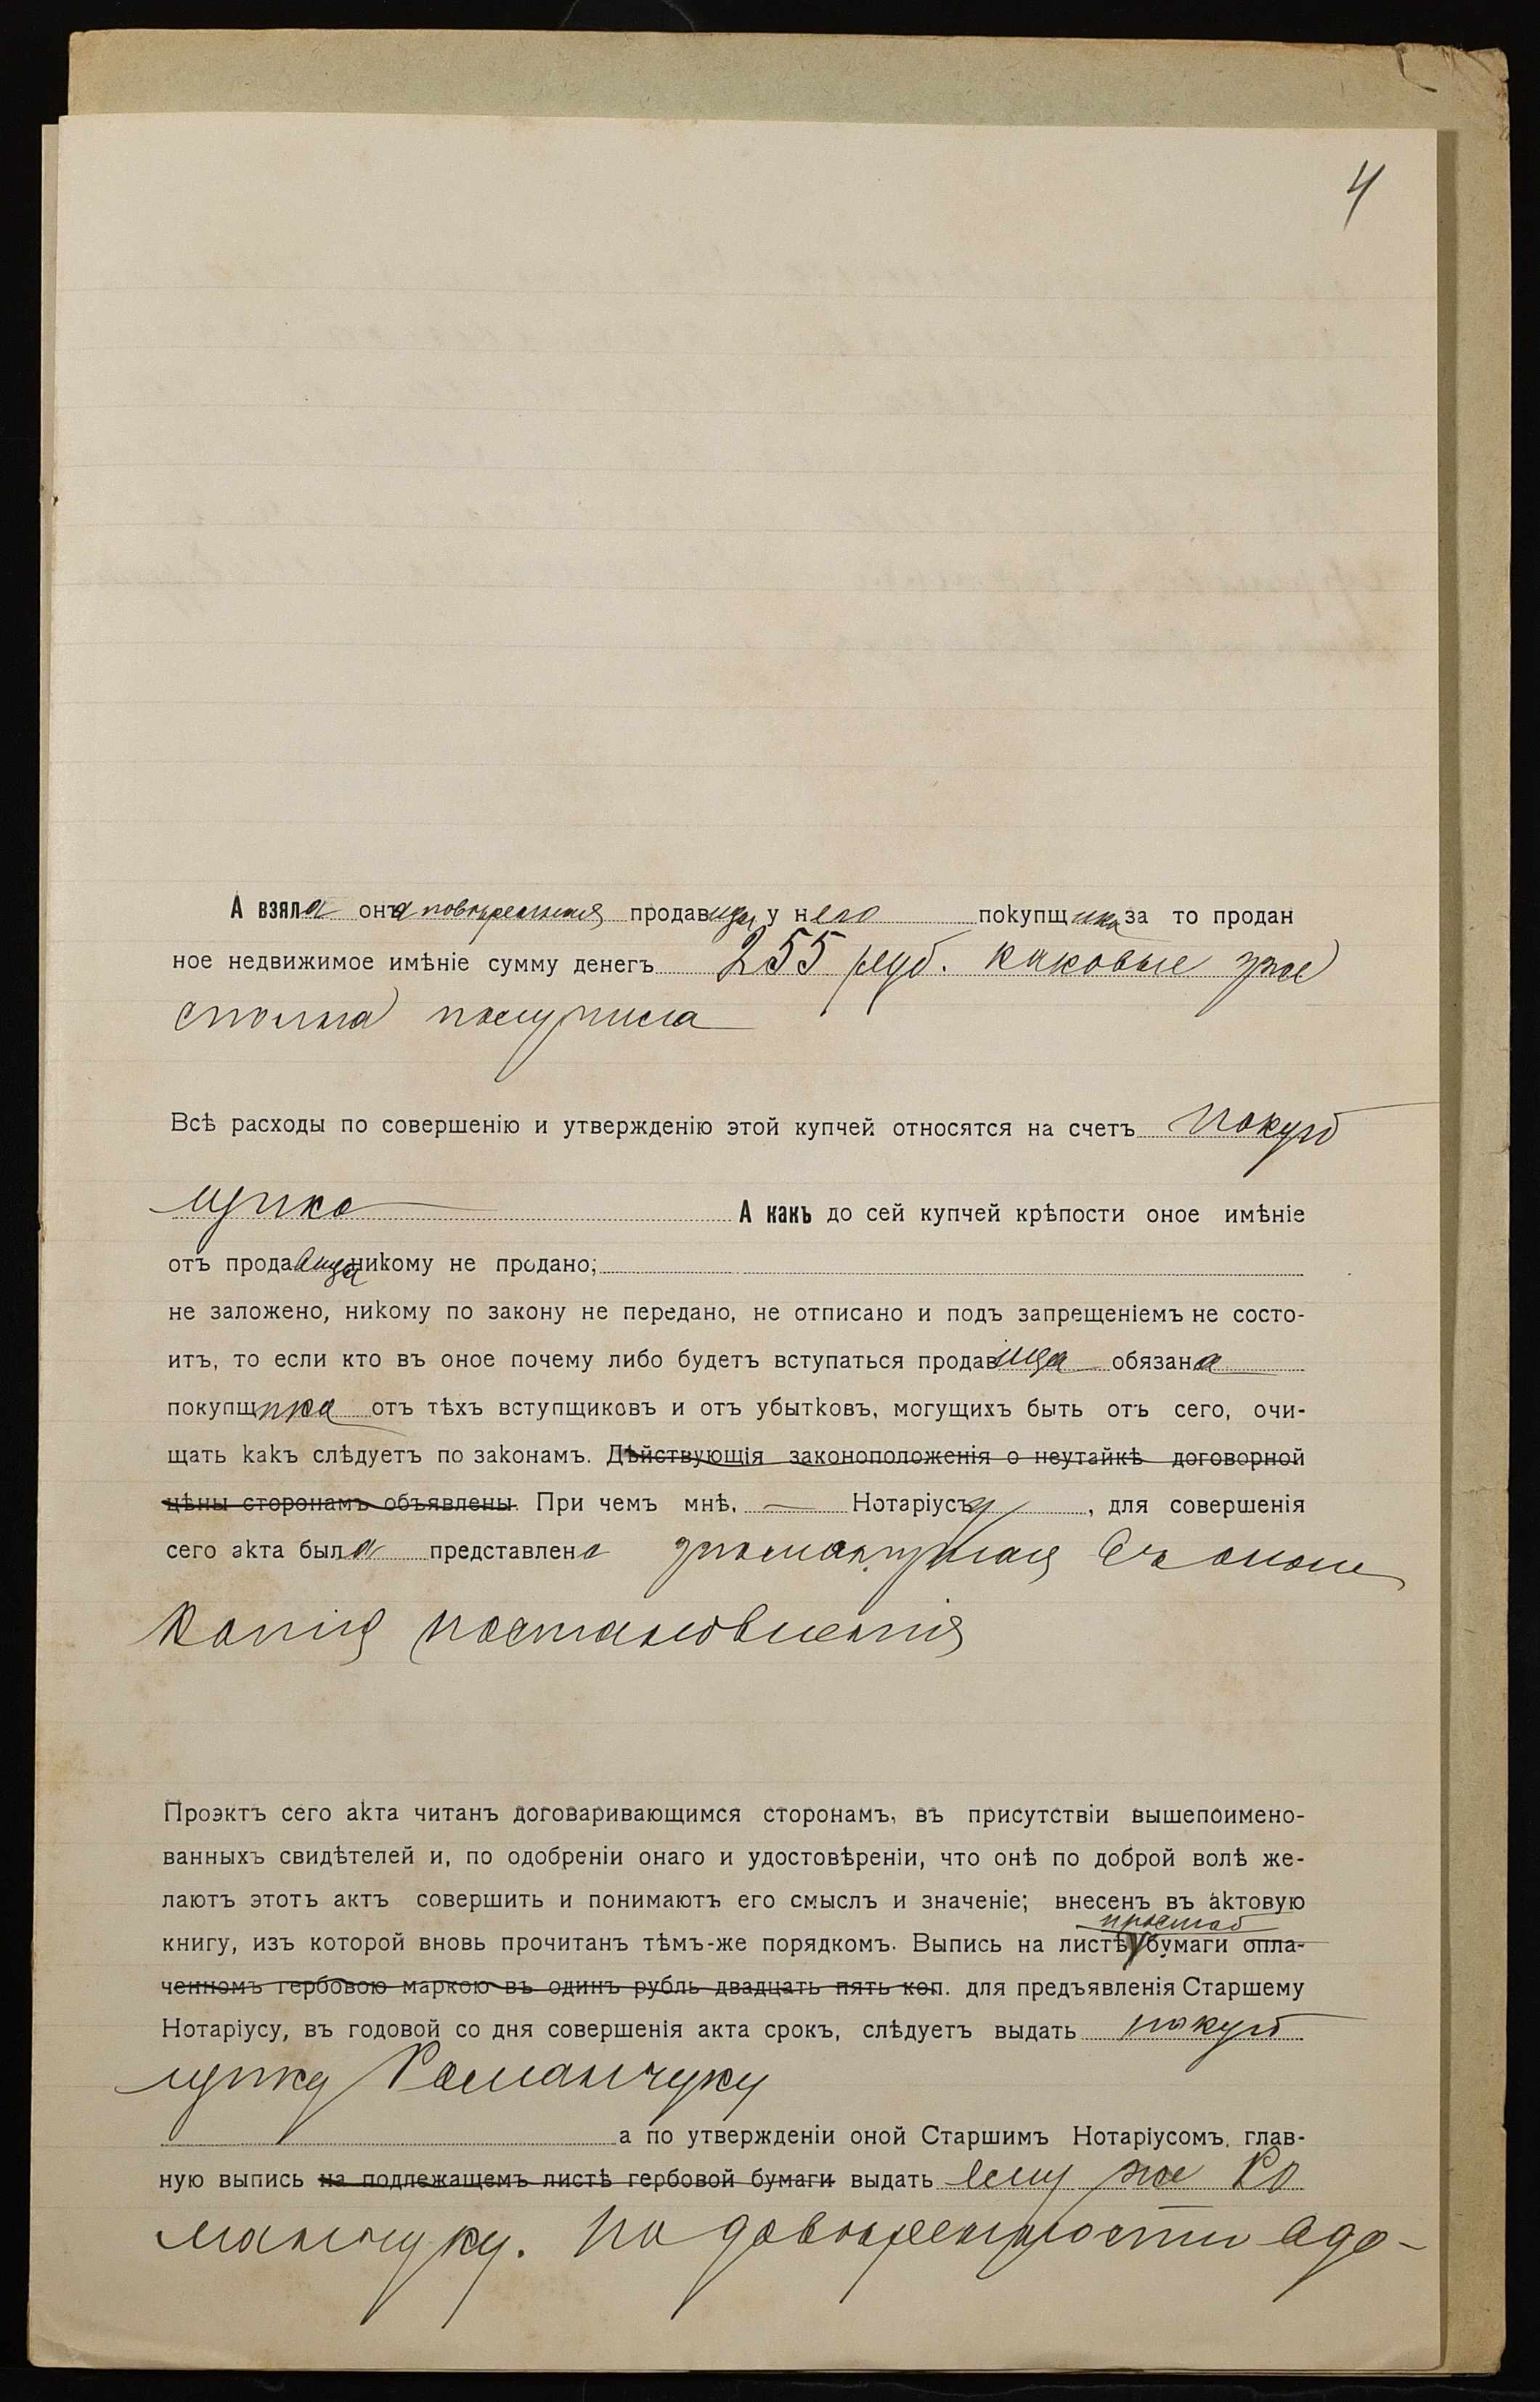 4
А взяла она повѣренная продавица у него покупщика за то продан
ное недвижимое имѣніе сумму денегъ 255 руб. каковые уже
сполна получила
Всѣ расходы по совершенію и утвержденію этой купчей относятся на счетъ покуп
щика А какъ до сей купчей крѣпости оное имѣніе
отъ продавица никому не продано;
не заложено, никому по закону не передано, не отписано и подъ запрещеніемъ не состо-
итъ, то если кто въ оное почему либо будетъ вступаться продавица обязана
покупщика отъ тѣхъ вступщиковъ и отъ убытковъ, могущихъ быть отъ сего, очи-
щать какъ слѣдуетъ по законамъ. Дѣйствующія законоположенія о неутайкѣ договорной
цѣны сторонамъ объявлены. При чемъ мнѣ, Нотаріусу, для совершенія
сего акта была представлена
копія постановленія
Проэктъ сего акта читанъ договаривающимся сторонамъ, въ присутствіи вышепоимено-
ванныхъ свидѣтелей и, по одобреніи онаго и удостовѣреніи, что онѣ по доброй волѣ же-
лаютъ этотъ актъ совершить и понимаютъ его смыслъ и значеніе; внесенъ въ актовую
простой
книгу, изъ которой вновь прочитанъ тѣмъ-же порядкомъ. Выпись на листѣ бумаги опла-
ченномъ гербовою маркою въ одинъ рубль двадцать пять коп. для предъявленія Старшему
Нотаріусу, въ годовой со дня совершенія акта срокъ, слѣдуетъ выдать покуп
щику Романчуку
а по утвержденіи оной Старшимъ Нотаріусомъ, глав-
ную выпись на подлежащемъ листѣ гербовой бумаги выдать ему же Ро
манчуку. По довѣренности Адо-